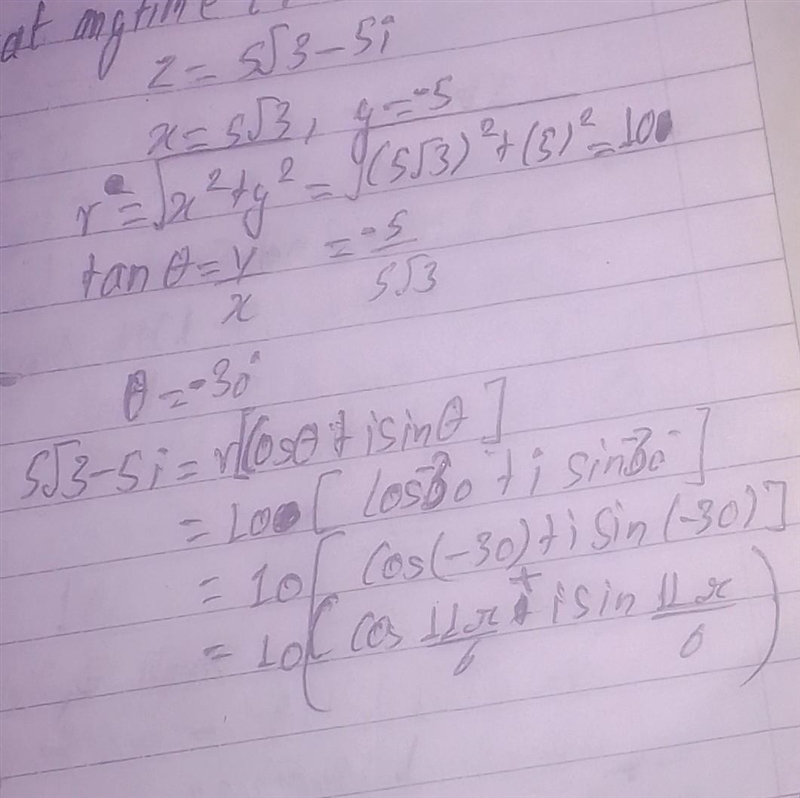 at
z = 5√3 - 5i
x = 5√3, y = -5
r = √x² + y² = √(5√3)² + (5)² = 10
tan θ = y/x = -5/5√3
θ = -30°
5√3 - 5i = r[Cosθ + i sin θ]
= 10[ Cos-30 + i sin-30 ]
= 10[ Cos(-30) + i sin (-30) ]
= 10( Cos 11π/6 + i sin 11π/6 )